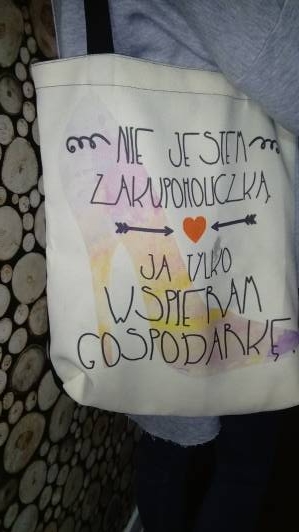 NIE JESTEM
ZAKUPOHOLICZKĄ
JA TYLKO
WSPIERAM
GOSPODARKĘ.